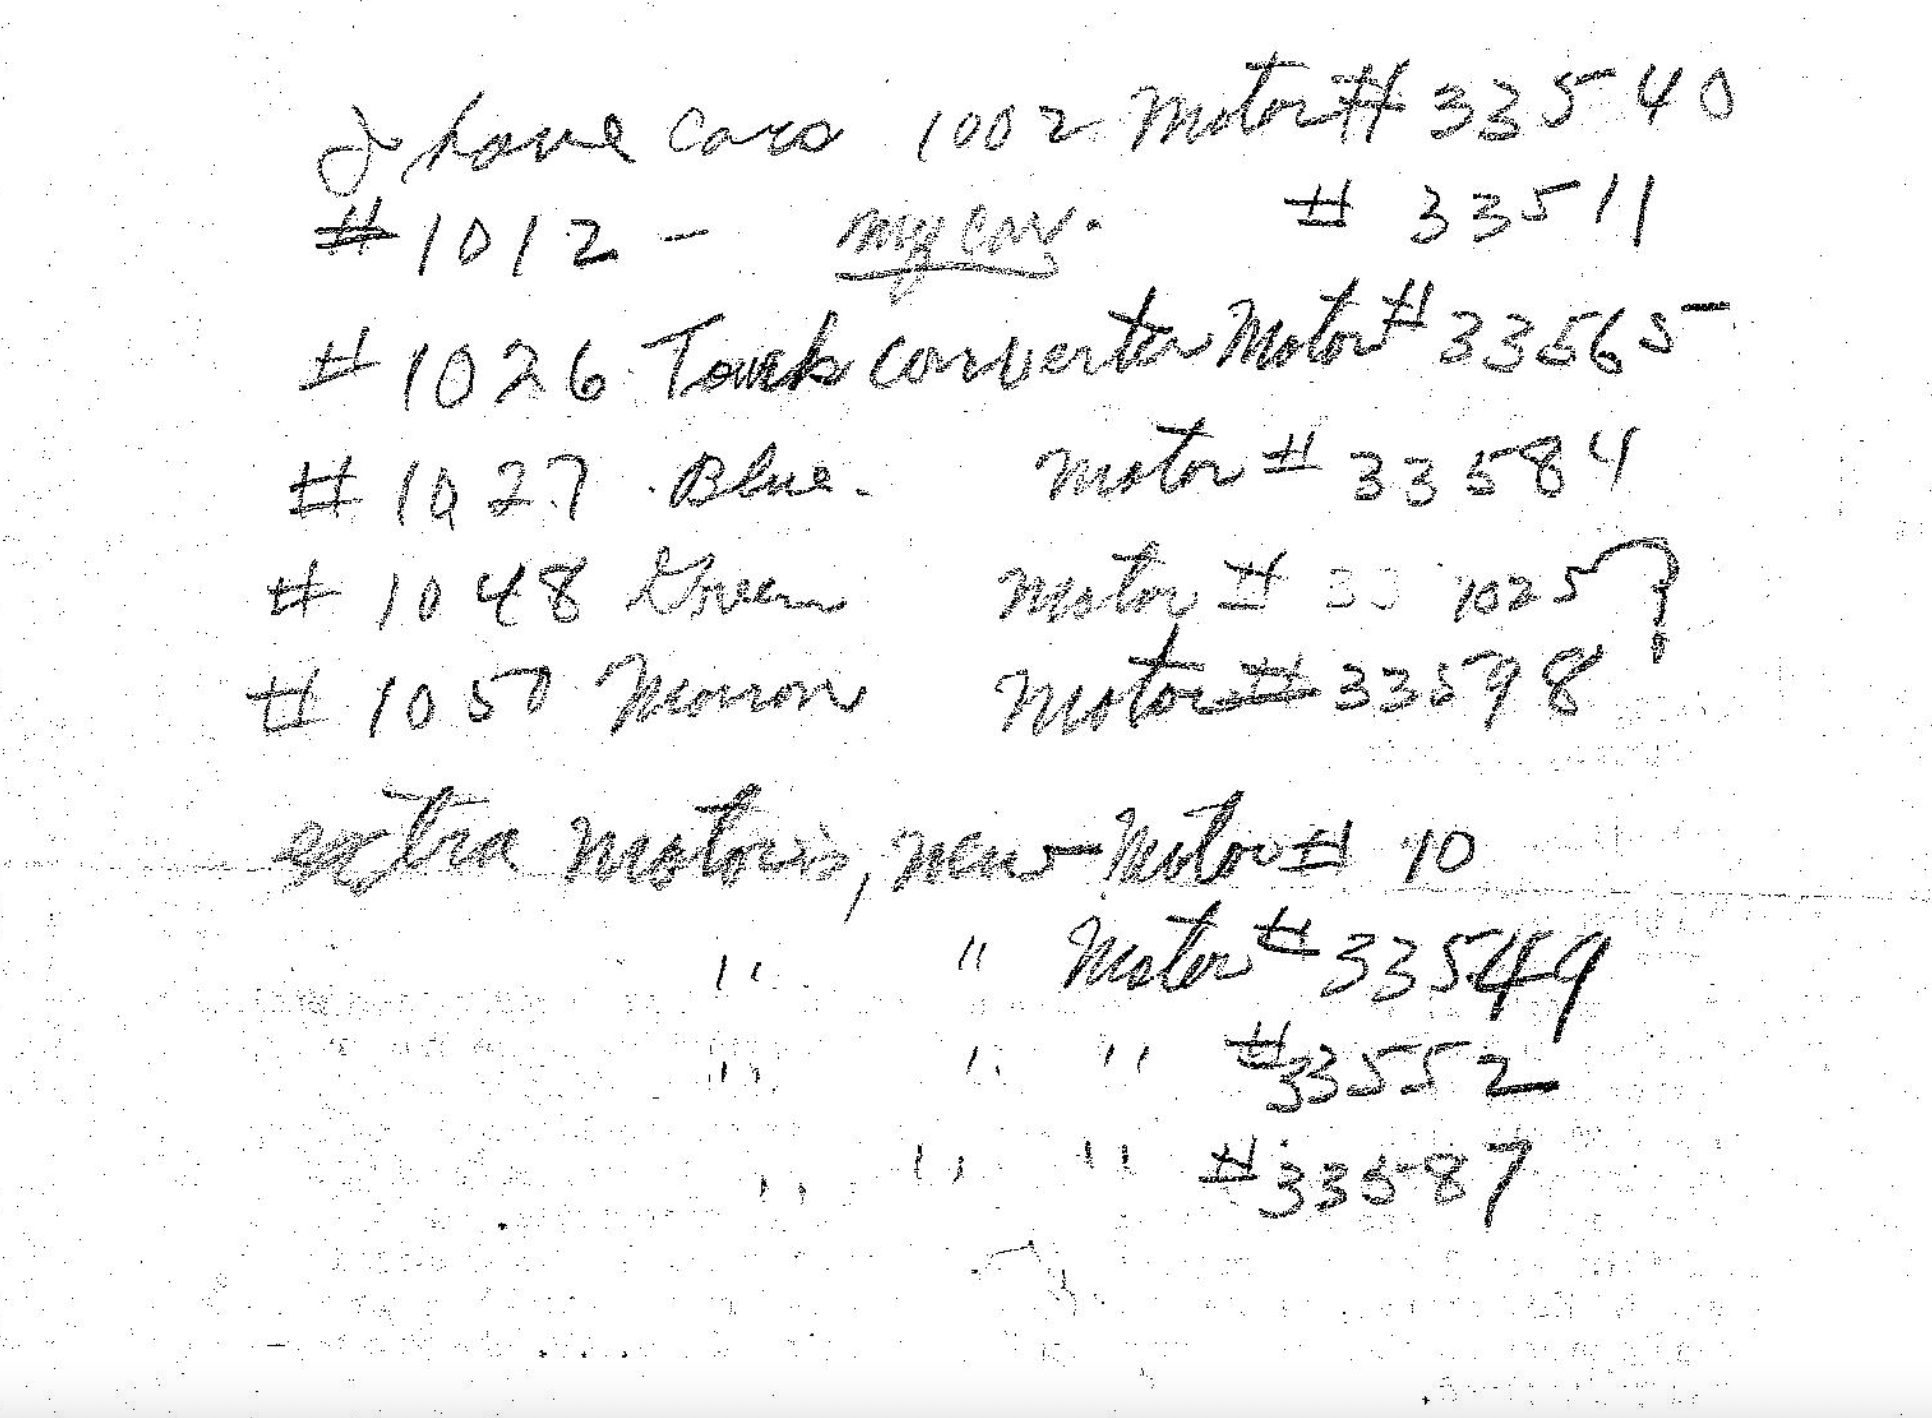 I have cars 1002 Motor # 33540
#1012 - my car. # 33511
#1026 Tourk converter Motor # 33565
#1027 Blue. Motor # 33584
#1048 Green Motor # 33 1025 ?
#1050 Moroon Motor # 33598
extra motors, new - Motor # 10
" " Motor # 33549
" " " # 33552
" " " # 33587